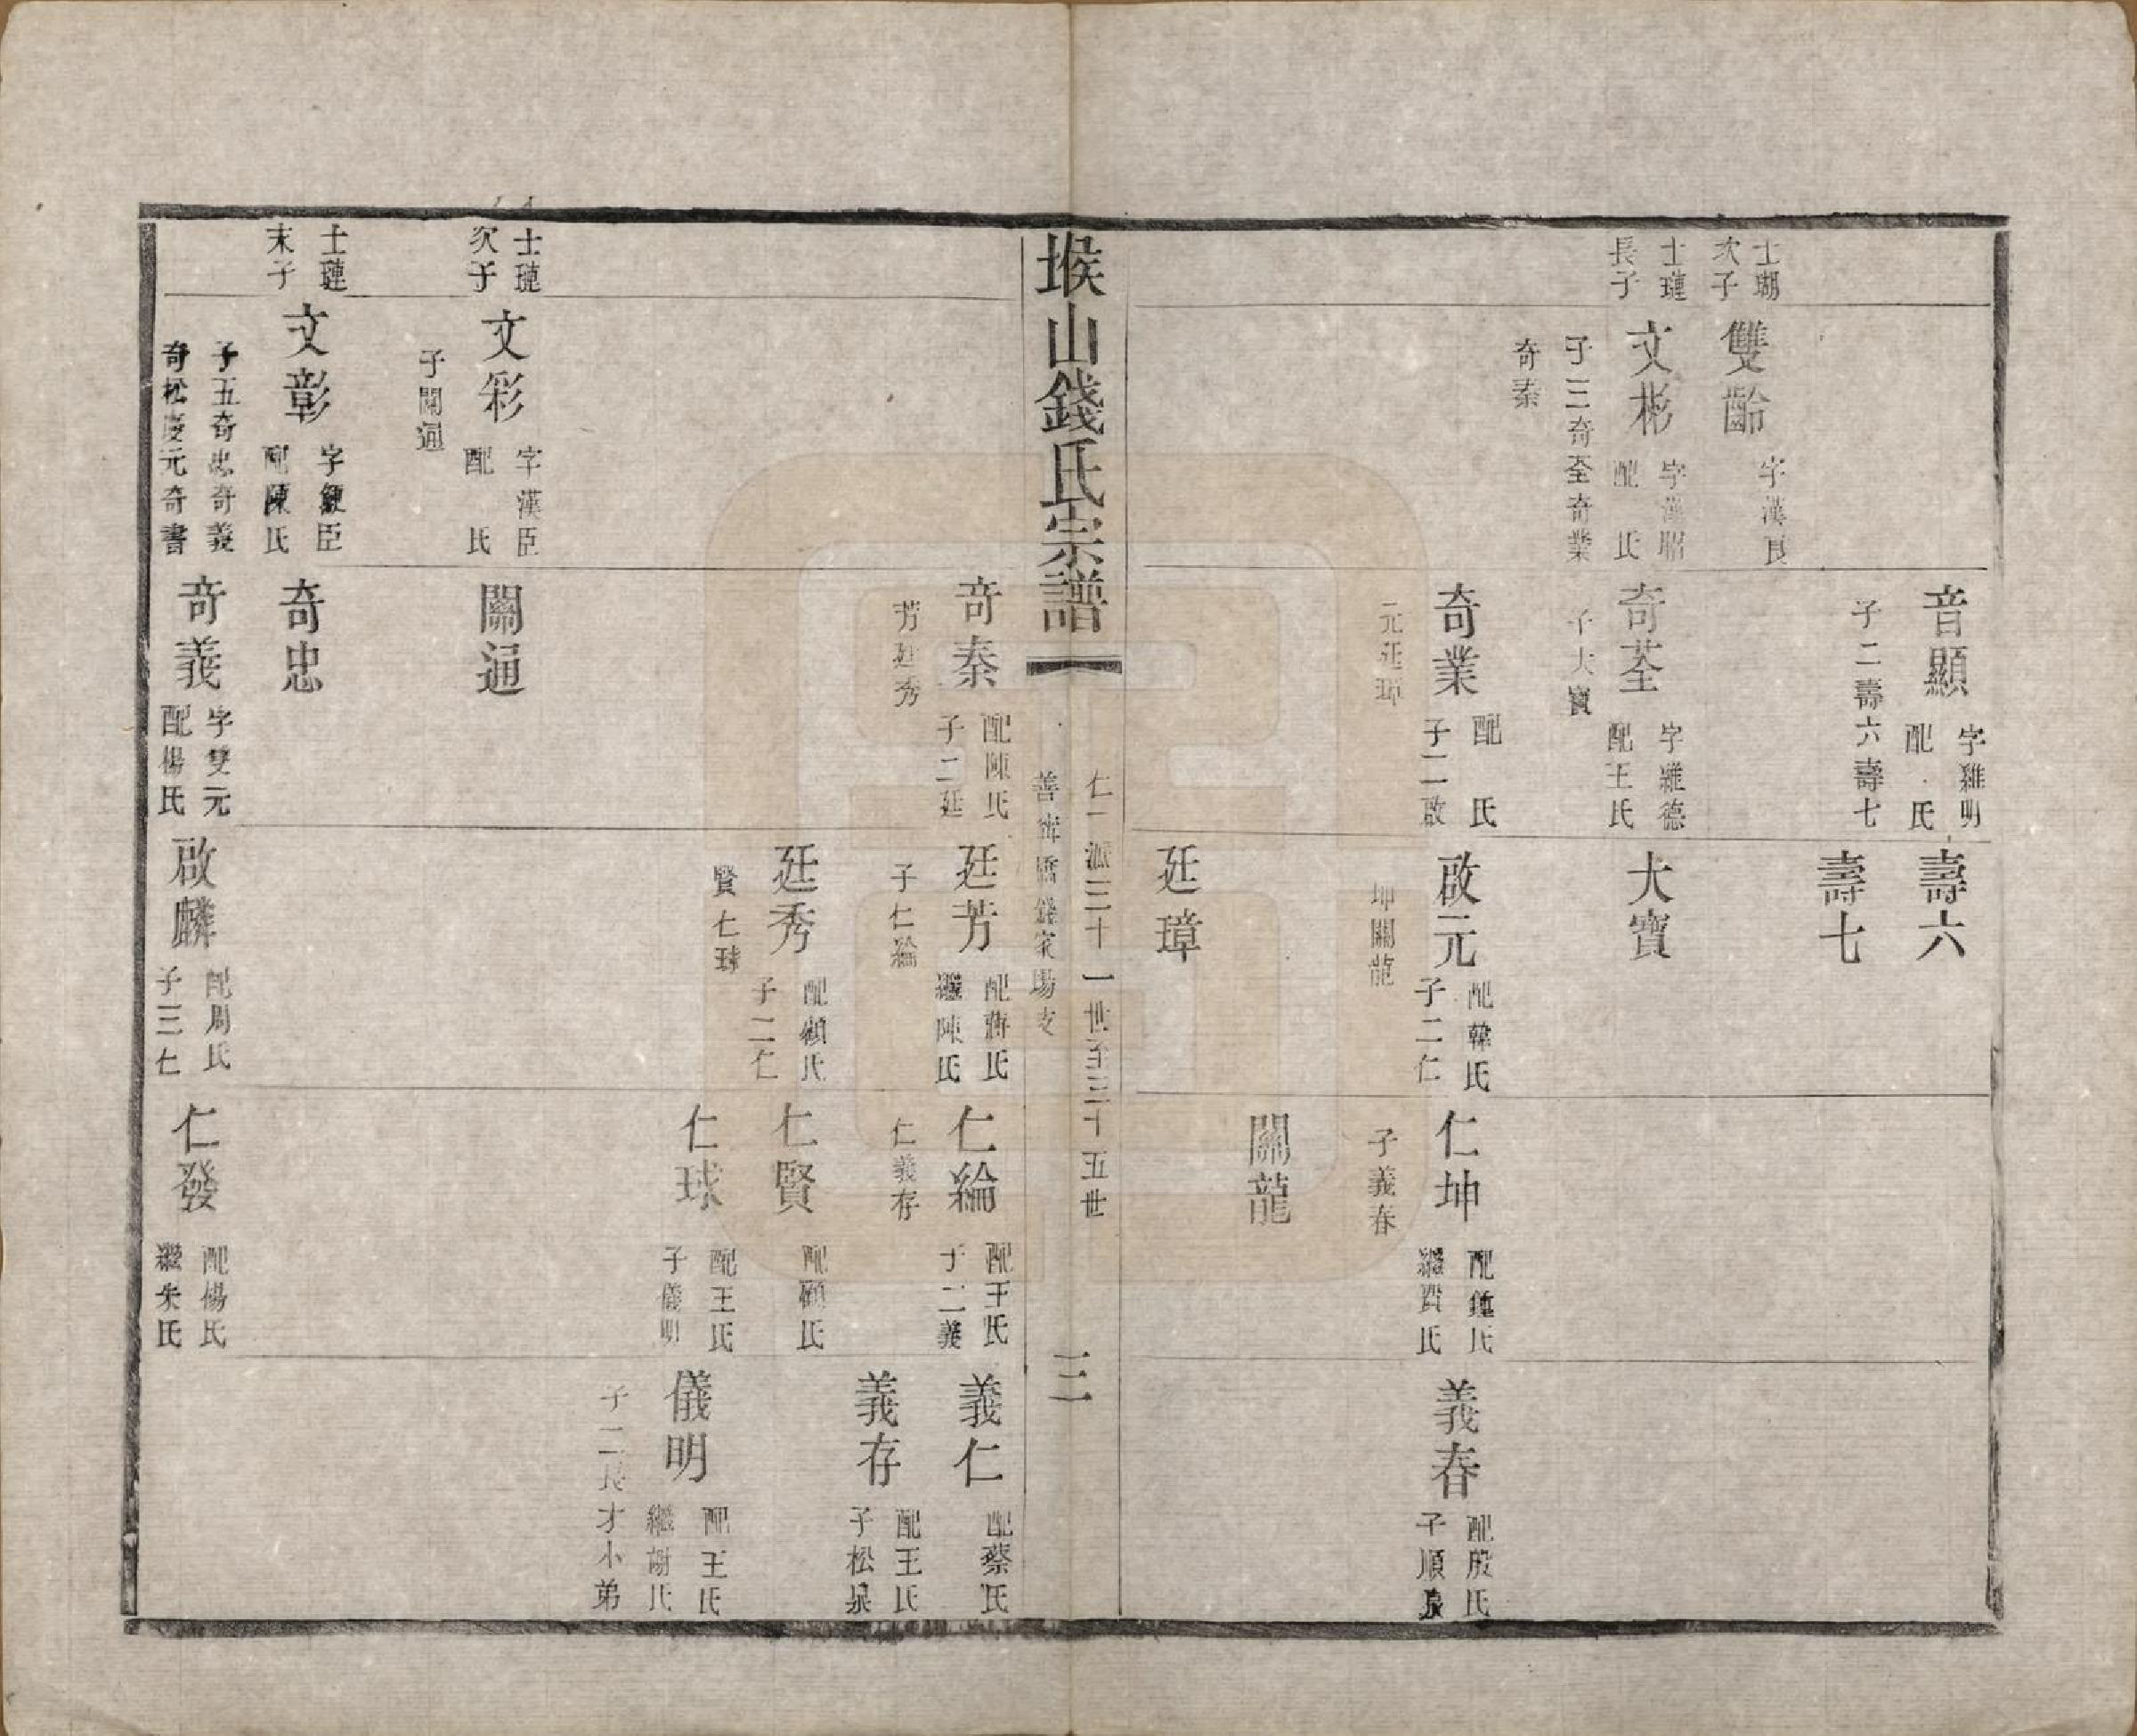 音顯 字雞明 配 氏
子二壽六壽七
壽六
壽七
士瑚次子
雙齡 字漢良
士璉長子
文彬 字漢昭 配 氏
子三奇荃奇業
奇秦
奇荃 字雞德 配王氏
子大寶
大寶
奇業 配 氏 子二啟
元廷璋
啟元 配韓氏 子二仁
坤關龍
仁坤 配鍾氏 繼費氏
子義春
義春 配殷氏 子順泉
關龍
廷璋
堠山錢氏宗譜
仁一派三十一世至三十五世
橋錢家場支
三
奇秦 配陳氏 子二廷
芳廷秀
廷芳 配蔣氏 繼陳氏
子仁綸
仁綸 配王氏 子二義
仁義存
義仁 配蔡氏
義存 配王氏 子松泉
廷秀 配顧氏 子二仁
賢仁球
仁賢 配顧氏
仁球 配王氏 子儀明
儀明 配王氏 繼謝氏
子二長才小弟
士璉次子
文彩 字漢臣 配 氏
子關通
關通
士璉末子
文彰 字 臣 配陳氏
子五奇忠奇義
奇松慶元奇書
奇忠
奇義 字雙元 配楊氏
啟麟 配周氏 子三仁
仁發 配楊氏 繼朱氏